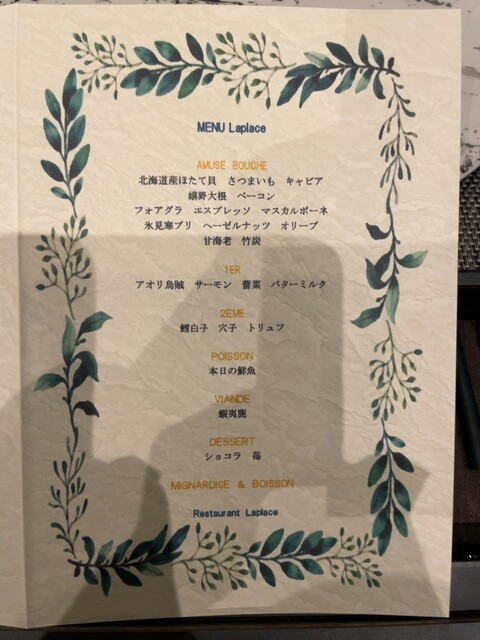 MENU Laplace
AMUSE BOUCHE
北海道産ほたて貝 さつまいも キャビア
嬉野大根 ベーコン
フォアグラ エスプレッソ マスカルポーネ
氷見寒ブリ ヘーゼルナッツ オリーブ
甘海老 竹炭
1ER
アオリ烏賊 サーモン 蕾菜 バターミルク
2EME
鱈白子 穴子 トリュフ
POISSON
本日の鮮魚
VIANDE
蝦夷鹿
DESSERT
ショコラ 苺
MIGNARDISE & BOISSON
Restaurant Laplace